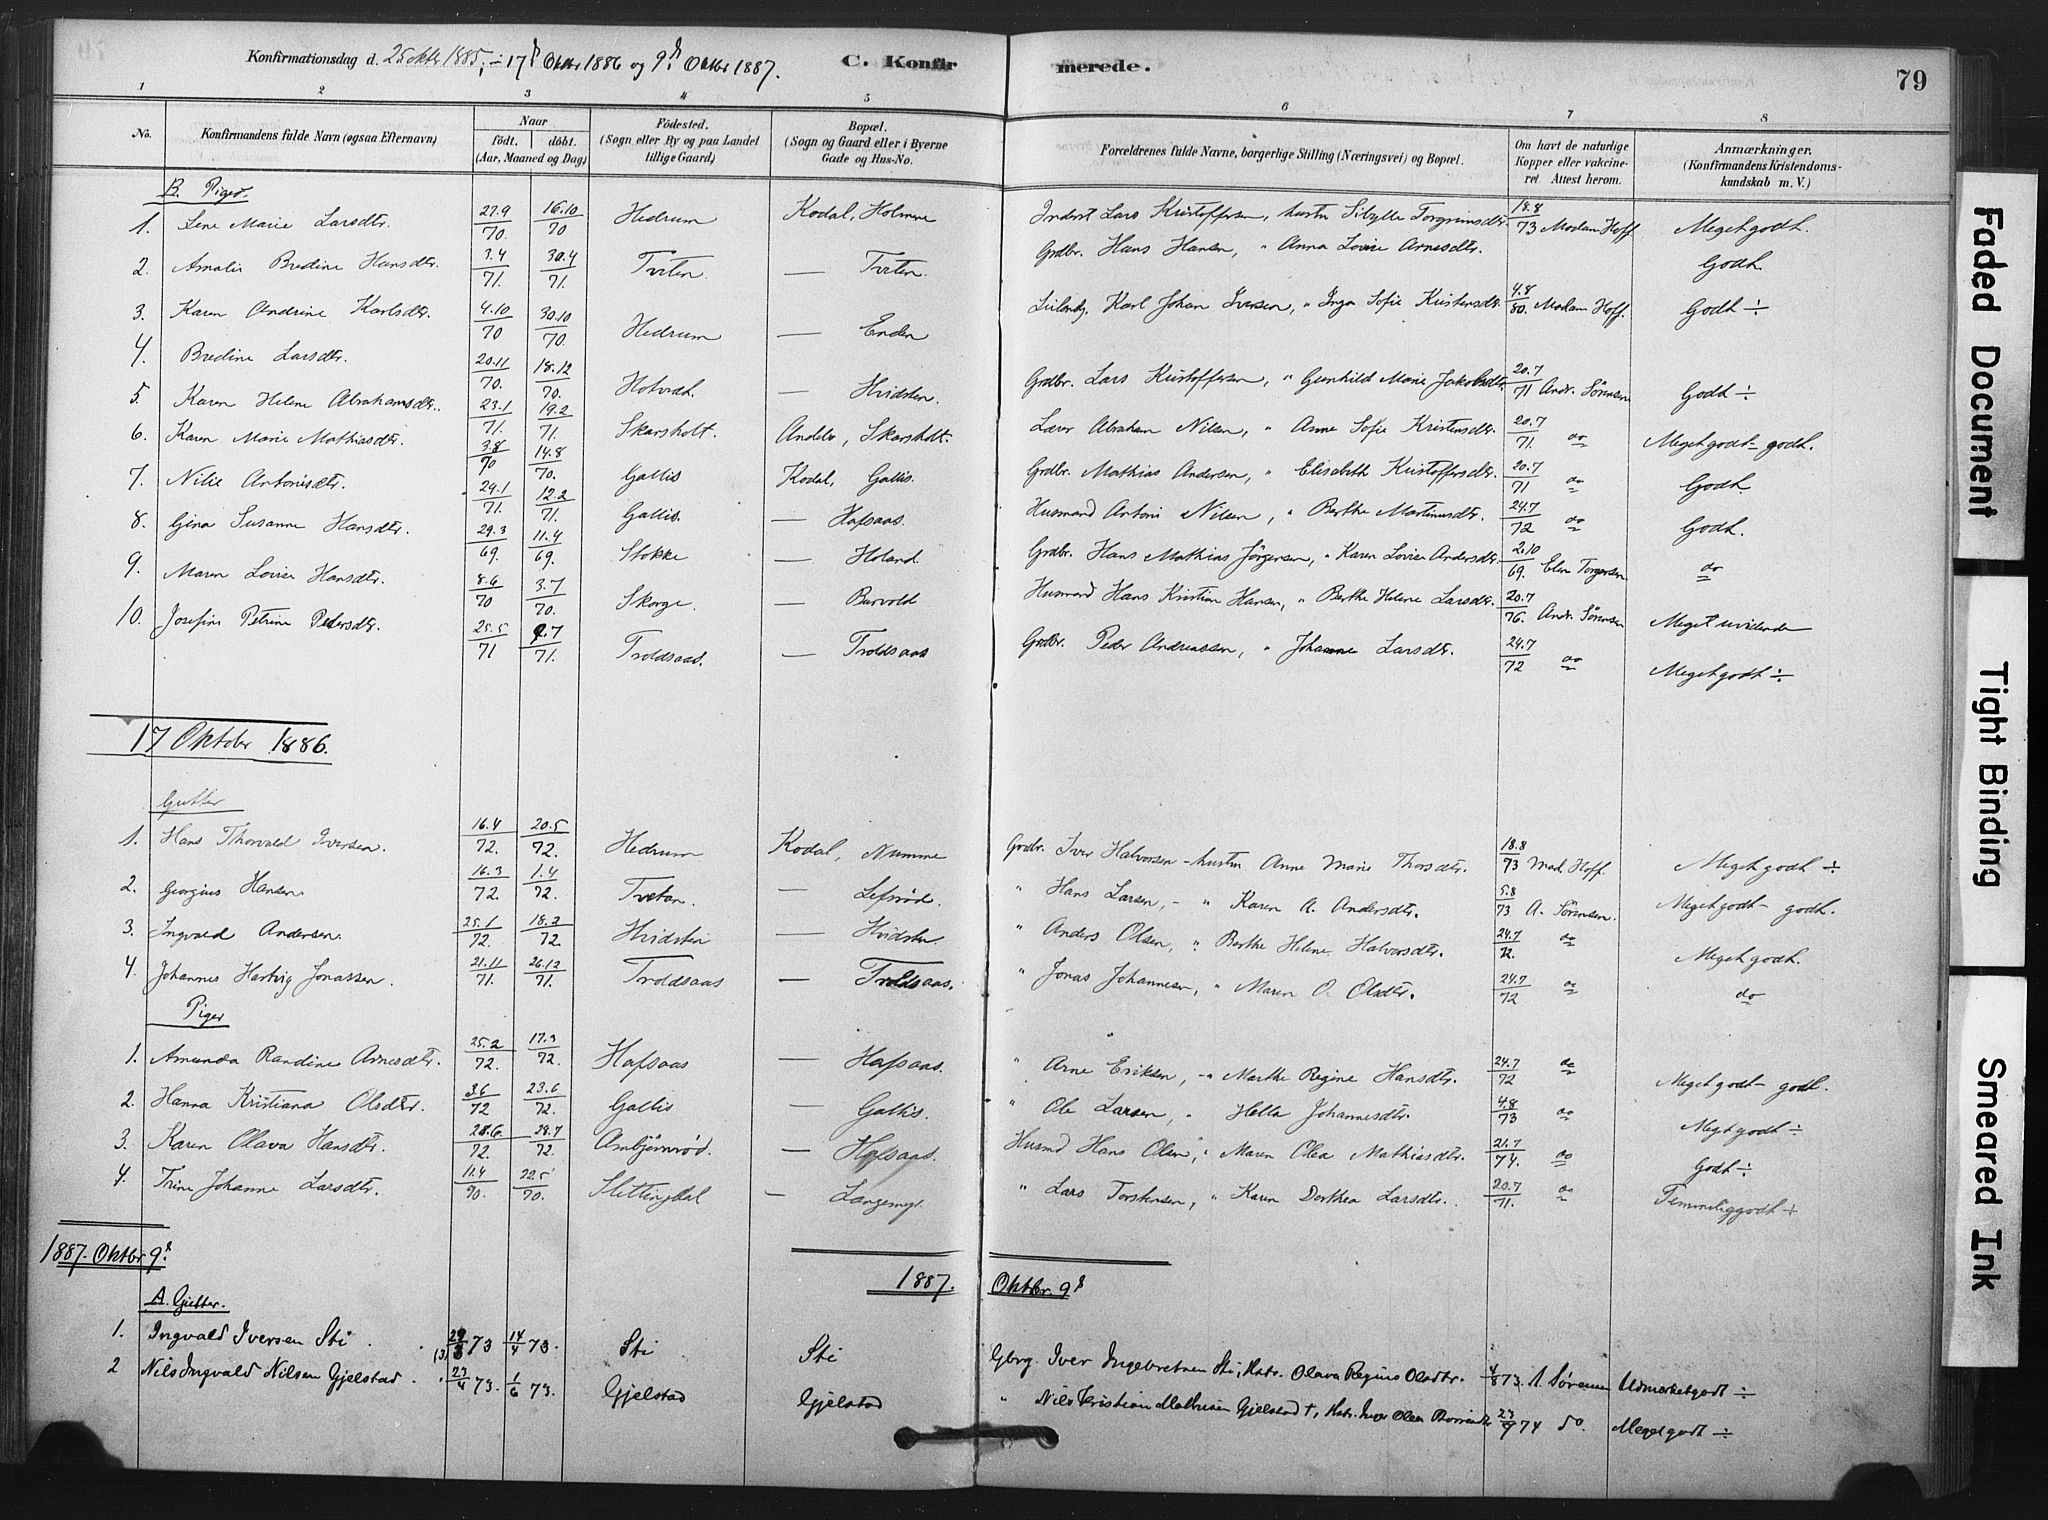 Konfirmationsdag d. 25 oktr 1885, - 17d Oktbr 1886 og 9d Oktbr 1887. C. Konfirmerede. 79
1 2 3 4 5 6 7 8
No. Konfirmandens fulde Navn (ogsaa Efternavn) Naar født. døbt. (Aar, Maaned og Dag) Fødested. (Sogn eller By og paa Landet tillige Gaard) Bopæl. (Sogn og Gaard eller i Byerne Gade og Hus-No. Forældrenes fulde Navne, borgerlige Stilling (Næringsvei) og Bopæl. Om havt de naturlige Kopper eller vakcineret Attest herom. Anmærkninger. (Konfirmandens Kristendomskundskab m. V.)
B. Piger.
1. Lene Marie Larsdtr. 27.9/70. 16.10/70 Hedrum Kodal, Holmene Inderst Lars Kristoffersen, hustru Sibylle Torgrimsdtr. 18.8/73 Madam Hoff Meget godt.
2. Amalie Bredine Hansdtr. 3.4/71. 30.4/71. Tviten. — Tviten. Grdbr. Hans Hansen, " Anna Lovise Arnesdtr. Godt.
3. Karen Andrine Karlsdtr. 4.10/70 30.10/70. Hedrum — Enden Leilændg. Karl Johan Iversen, " Inga Sofie Kristensdtr. 4.8/80. Madam Hoff. Godt ÷
4. Bredine Larsdtr. 20.11/70. 18.12/70. Hotvedt — Hvidsten. Grdbr. Lars Kristoffersen, " Gunhild Marie Jakobsdtr. 20.7/71 Andr. Sørensen Godt ÷
5. Karen Helene Abrahamsdtr. 23.1/71. 19.2/71. Skarsholt. Andebu, Skarsholt. Lærer Abraham Nilsen, " Anne Sofie Kristensdtr. 20.7/71. do Meget godt - godt.
6. Karen Marie Mathiasdtr. 3.8/70 14.8/70. Gallis Kodal, Gallis. Grdbr. Mathias Andersen, " Elisabeth Kristoffersdtr. 20.7/71 do Godt.
7. Nilie Antonisdtr. 29.1/71. 12.2/71. Gallis. — Hafsaas. Husmand Antoni Nilsen, " Berthe Martinusdtr. 24.7/72 do Godt.
8. Gina Susanne Hansdtr. 29.3/69. 11.4/69. Stokke — Holand Grdbr. Hans Mathias Jörgensen, " Karen Lovise Andersdtr. 2.10/69. Elen Torgersen do
9. Maren Lovise Hansdtr. 8.6/70 3.7/70. Skorge. — Burvold Husmand Hans Kristian Hansen, " Berthe Helene Larsdtr. 20.7/76. Andr. Sørensen Meget uvidende
10. Josefine Petrine Pedersdtr. 25.5/71 2.7/71. Troldsaas. — Troldsaas Grdbr. Peder Andreassen, " Johanne Larsdtr. 24.7/72 do Meget godt ÷
17 Oktober 1886.
Gutter
1. Hans Thorvald Iversen. 16.4/72. 20.5/72. Hedrum Kodal, Numme Grdbr. Iver Halvorsen - hustru Anne Marie Thorsdtr. 18.8/73 Mad. Hoff. Meget godt ÷
2. Georgius Hansen. 16.3/72. 1.4/72. Tvetan. — Lefsrød. " Hans Larsen, - " Karen A. Andersdtr. 5.8/73 A. Sørensen. Meget godt - godt.
3. Ingvald Andersen. 25.1/72. 18.2/72. Hvidsten — Hvidsten. " Anders Olsen, " Berthe Helene Halvorsdtr. 24.7/72. do Meget godt.
4. Johannes Hartvig Jonassen. 21.11/71. 26.12/71. Troldsaas — Troldsaas. " Jonas Johannesen, " Maren O. Olsdtr. 24.7/72 do do
Piger
1. Amunda Randine Arnesdtr. 25.2/72. 17.3/72. Hafsaas — Hafsaas. " Arne Eriksen, - " Marthe Regine Hansdtr. 24.7/72 do Meget godt - godt.
2. Hanna Kristiana Olsdtr. 3.6/72 23.6/72. Gallis — Gallis. " Ole Larsen, " Hella Johannesdtr. 4.8/73 do Meget godt ÷
3. Karen Olava Hansdtr. 28.6/72. 28.7/72. Ambjörnrød. — Hafsaas. Husmd Hans Olsen, " Maren Olea Mathiasdtr. 21.7/74. do Godt ÷
4. Trine Johanne Larsdtr. 11.4/70. 22.5/70. Slettingdal — Langemyr. " Lars Torstensen, " Karen Dorthea Larsdtr. 20.7/71. do Temmelig godt +
1887. Oktbr 9d. 1887. Oktbr 9d
A. Gutter.
1. Ingvald Iversen Sti. (3) 29/3 73 14/4 73. Sti Sti Gbrg. Iver Ingebretsen Sti, Hst. Olava Regine Olsdtr. 4/8 73. A Sørensen Udmerket godt ÷
2 Nils Ingvald Nilsen Gjelstad. 23/4 73. 1/6 73. Gjelstad Gjelstad " Nils Kristian Mathisen Gjelstad †, Hst. Inger Olea 23/9 74 do. Meget godt ÷
Faded Document
Tight Binding
Smeared Ink